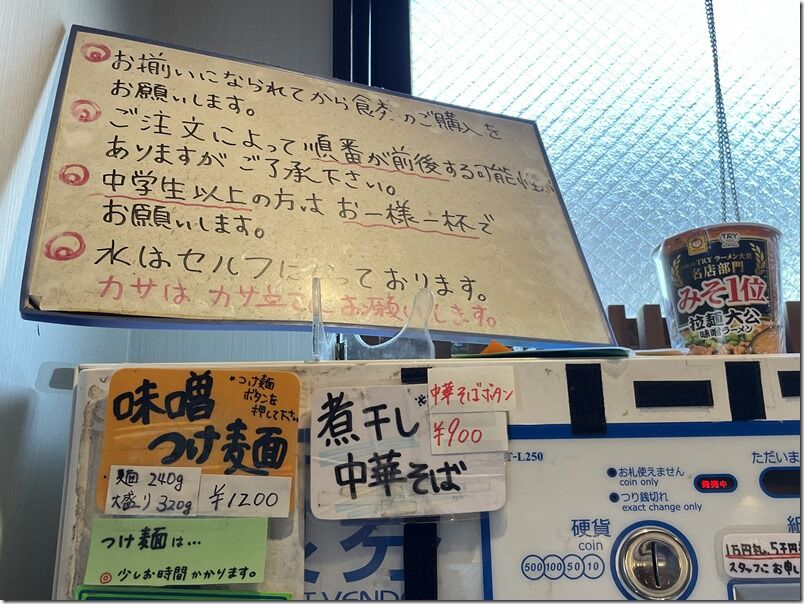 お揃いになられてから食券のご購入を
お願いします。
ご注文によって順番が前後する可能性が
ありますがご了承下さい。
中学生以上の方はお一様一杯で
お願いします。
水はセルフになっております。
カサはカサ立てにお願いします。
TRY
TRY ラーメン大賞
名店部門
みそ1位
拉麺 大公
味噌ラーメン
味噌
つけ麺
*つけ麺
ボタンを
押して下さい
麺 240g
大盛り 320g
¥1200
つけ麺は…
◎少しお時間かかります。
煮干し
中華そば
*中華そばボタン
¥900
T-L250
お札使えません
coin only
つり銭切れ
exact change only
発売中
ただいま
硬貨
coin
500 100 50 10
1万円札、5千円
スタッフにお申し
VEND